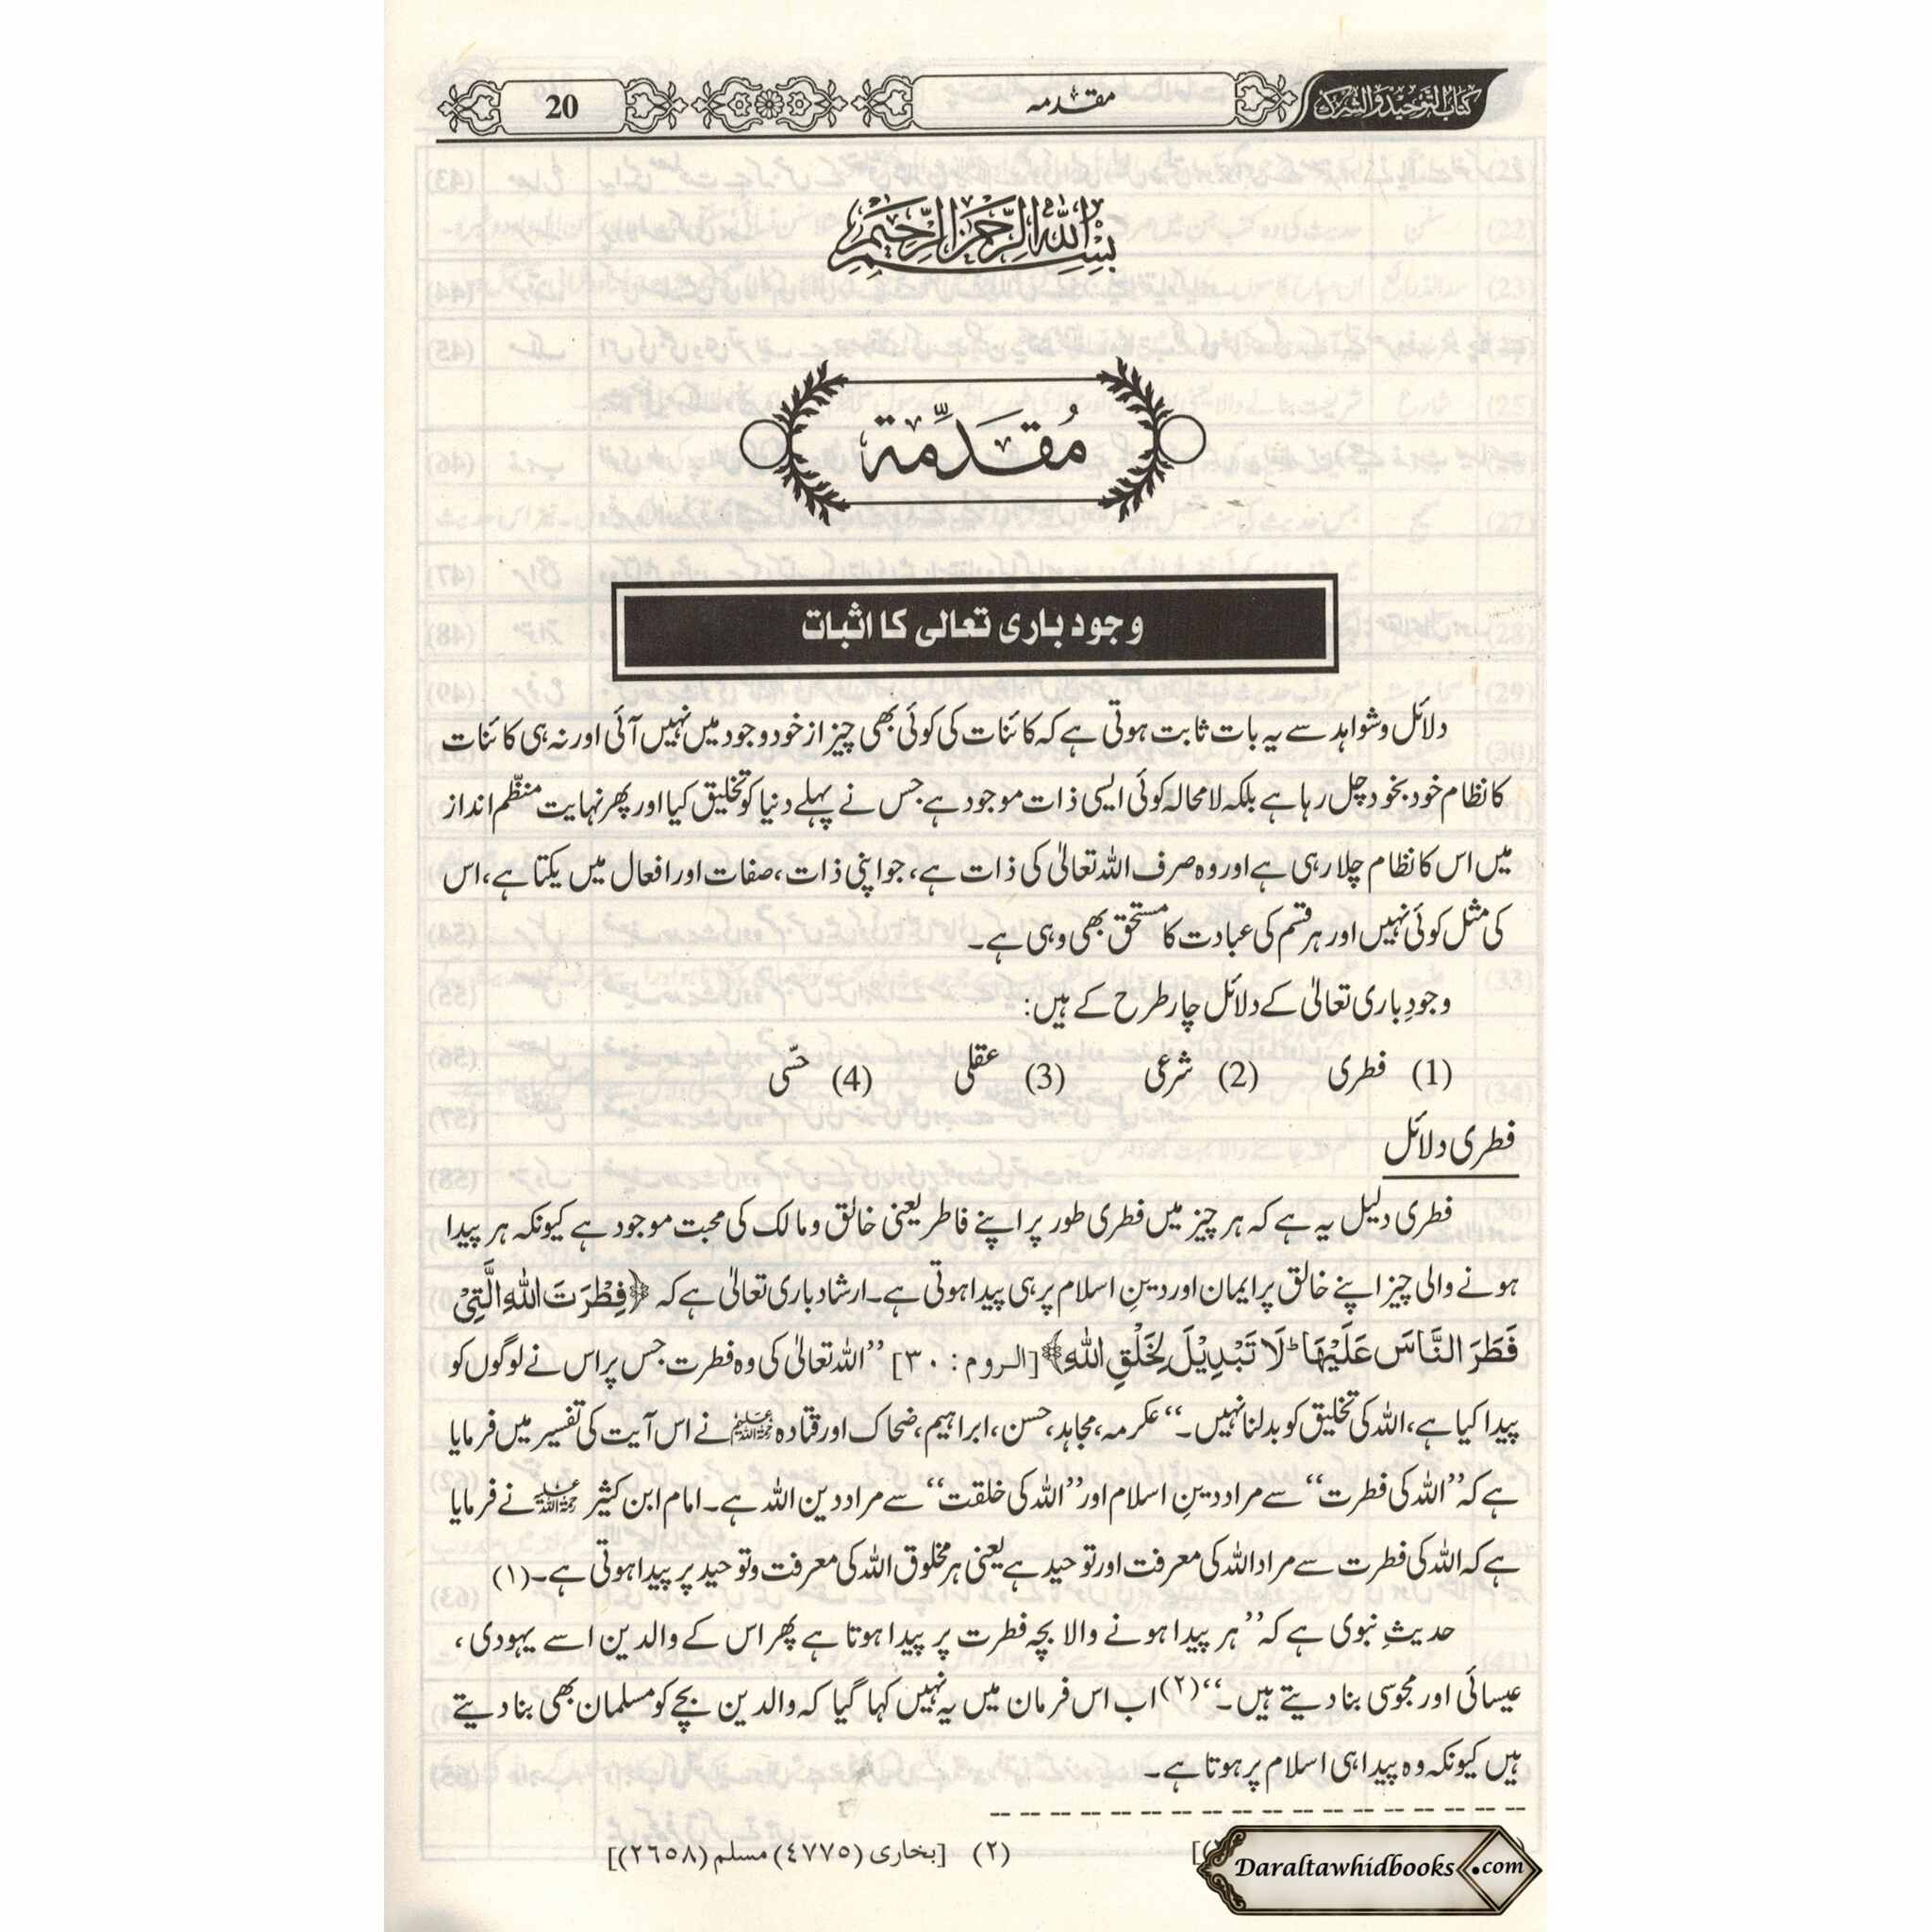 کتاب التوحید والشرک مقدمہ 20
بسم اللہ الرحمن الرحیم
مُقَدِّمَة
وجود باری تعالی کا اثبات
دلائل وشواہد سے یہ بات ثابت ہوتی ہے کہ کائنات کی کوئی بھی چیز از خود وجود میں نہیں آئی اور نہ ہی کائنات
کا نظام خود بخود چل رہا ہے بلکہ لامحالہ کوئی ایسی ذات موجود ہے جس نے پہلے دنیا کو تخلیق کیا اور پھر نہایت منظّم انداز
میں اس کا نظام چلا رہی ہے اور وہ صرف اللہ تعالیٰ کی ذات ہے، جو اپنی ذات، صفات اور افعال میں یکتا ہے، اس
کی مثل کوئی نہیں اور ہر قسم کی عبادت کا مستحق بھی وہی ہے۔
وجودِ باری تعالیٰ کے دلائل چار طرح کے ہیں:
(1) فطری (2) شرعی (3) عقلی (4) حسّی
فطری دلائل
فطری دلیل یہ ہے کہ ہر چیز میں فطری طور پر اپنے فاطر یعنی خالق و مالک کی محبت موجود ہے کیونکہ ہر پیدا
ہونے والی چیز اپنے خالق پر ایمان اور دینِ اسلام پر ہی پیدا ہوتی ہے۔ ارشاد باری تعالیٰ ہے کہ ﴿فِطْرَتَ اللّٰہِ الَّتِیْ
فَطَرَ النَّاسَ عَلَیْهَا ؕ لَا تَبْدِیْلَ لِخَلْقِ اللّٰہِ﴾ [الروم : ۳۰] ’’اللہ تعالیٰ کی وہ فطرت جس پر اس نے لوگوں کو
پیدا کیا ہے، اللہ کی تخلیق کو بدلنا نہیں۔‘‘ عکرمہ، مجاہد، حسن، ابراہیم، ضحاک اور قتادہ رحمۃ اللہ علیہم نے اس آیت کی تفسیر میں فرمایا
ہے کہ ’’اللہ کی فطرت‘‘ سے مراد دینِ اسلام اور ’’اللہ کی خلقت‘‘ سے مراد دین اللہ ہے۔ امام ابن کثیر رحمۃ اللہ علیہ نے فرمایا
ہے کہ اللہ کی فطرت سے مراد اللہ کی معرفت اور توحید ہے یعنی ہر مخلوق اللہ کی معرفت و توحید پر پیدا ہوتی ہے۔ (۱)
حدیثِ نبوی ہے کہ ’’ہر پیدا ہونے والا بچہ فطرت پر پیدا ہوتا ہے پھر اس کے والدین اسے یہودی،
عیسائی اور مجوسی بنا دیتے ہیں۔‘‘ (۲) اب اس فرمان میں یہ نہیں کہا گیا کہ والدین بچے کو مسلمان بھی بنا دیتے
ہیں کیونکہ وہ پیدا ہی اسلام پر ہوتا ہے۔
(۲) [بخاری (٤٧٧٥) مسلم (٢٦٥٨)]
Daraltawhidbooks.com